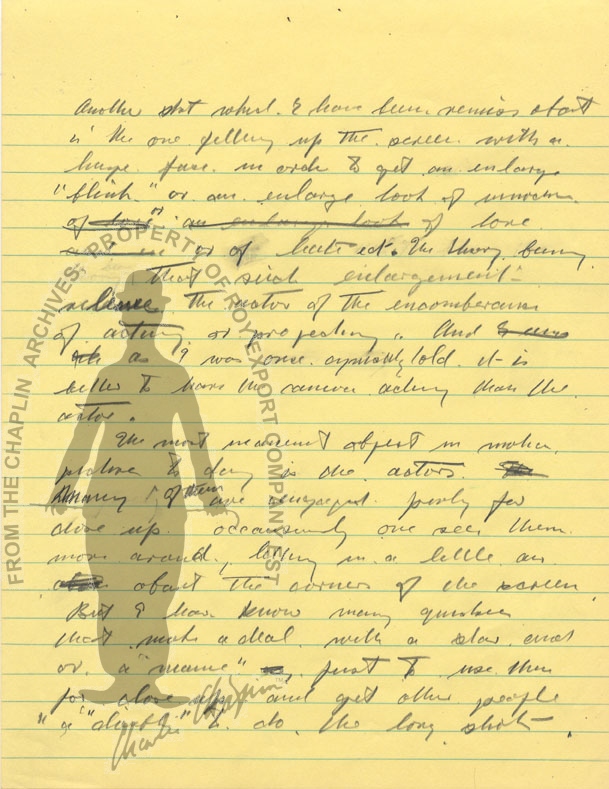 Another shot what I have been remiss about
is the one filling up the screen with a
huge face in order to get an enlarge
"blink" or an enlarge look of
of love or an enlarge look of love
or of hate ect. The theory being
that such enlargement
relieve the actor of the encomberance
of acting or projecting. And
as I was once told it is
better to have the camera acting than the
actor.
The most object in motion
to day is the actors
many of them are engaged purely for
close up. occasionally one sees them
move around, letting in a little air
about the corners of the screen.
But I have know many
that make a deal with a star and
or a "name" just to use them
for close up and get other people
"a "double" to do the long shots.
FROM THE CHAPLIN ARCHIVES, PROPERTY OF ROY EXPORT COMPANY EST
Charlie Chaplin